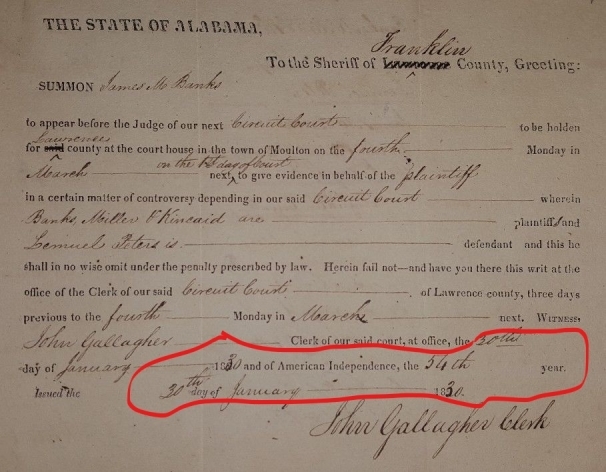 THE STATE OF ALABAMA,
Franklin
To the Sheriff of Lawrence County, Greeting:
SUMMON James M Banks
to appear before the Judge of our next Circuit Court to be holden
Lawrence
for said county at the court house in the town of Moulton on the fourth Monday in
on the 1st day of Court
March next, to give evidence in behalf of the plaintiff
in a certain matter of controversy depending in our said Circuit Court wherein
Banks, Miller & Kincaid are plaintiffs and
Lemuel Peters is defendant and this he
shall in no wise omit under the penalty prescribed by law. Herein fail not—and have you there this writ at the
office of the Clerk of our said Circuit Court of Lawrence county, three days
previous to the fourth Monday in March next. WITNESS,
John Gallagher Clerk of our said court, at office, the 20th
day of January 1830 and of American Independence, the 54th year.
Issued the 30th day of January 1830.
John Gallagher Clerk